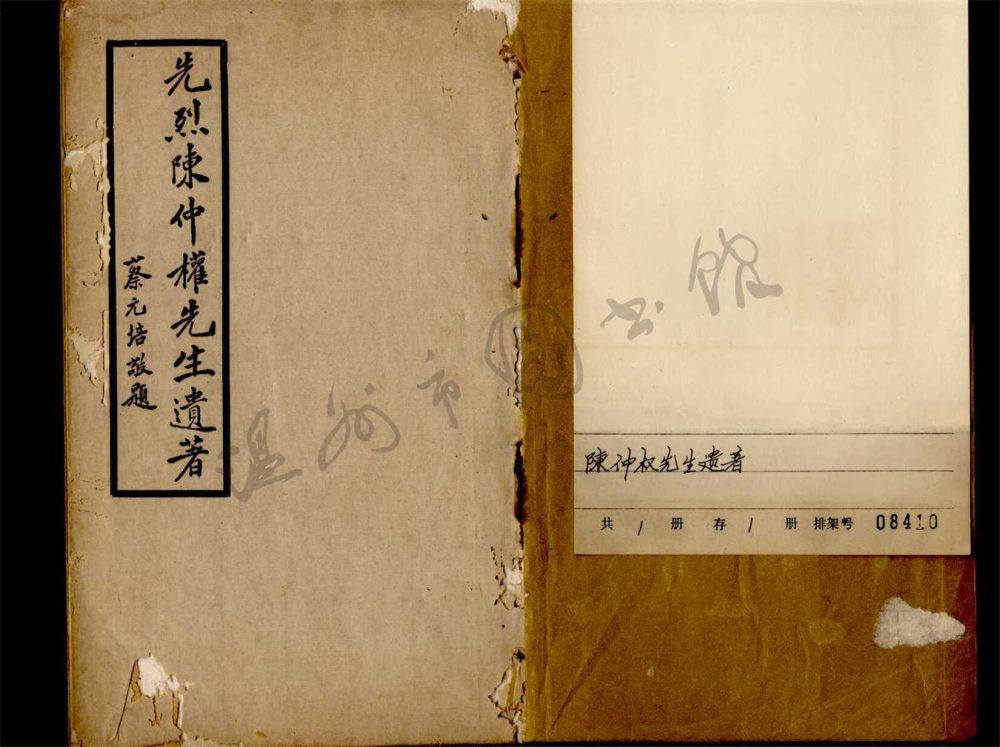 先烈陳仲權先生遺著
蔡元培敬題
温州市图书馆
陳仲权先生遗著
共 1 册 存 1 册 排架号 08410